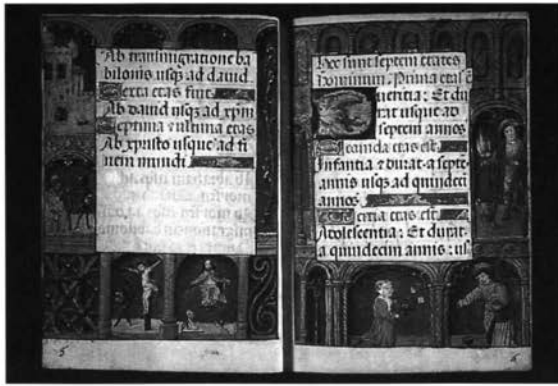 Ab transmigratione ba
bilonis usqꝫ ad dauid.
Sexta etas fuit
Ab dauid usqꝫ ad xpm
Septima & ultima etas
Ab xpisto usque ad fi
nem mundi.
5
Hec sunt septem etates
hominum. Prima etas ē
Pueritia: Et du
rat usque ad
septem annos
Secunda etas est.
Infantia & durat a septē
annis usqꝫ ad quindecī
annos.
Tertia etas est.
Adolescentia: Et durat
a quindecim annis: us
6